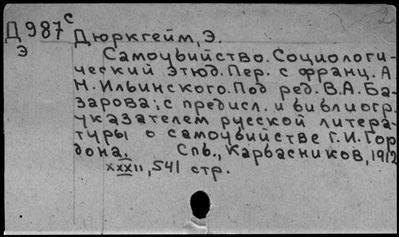 Д987с
Э
Дюркгейм, Э.
Самоубийство. Социологи-
ческий этюд. Пер. с франц. А
Н. Ильинского. Под ред. В.А. Ба-
зарова; с предисл. и библиогр.
указателем русской литера-
туры о самоубийстве Г.И. Гор
дона. Спб., Карбасников, 1912
XXXII, 541 стр.